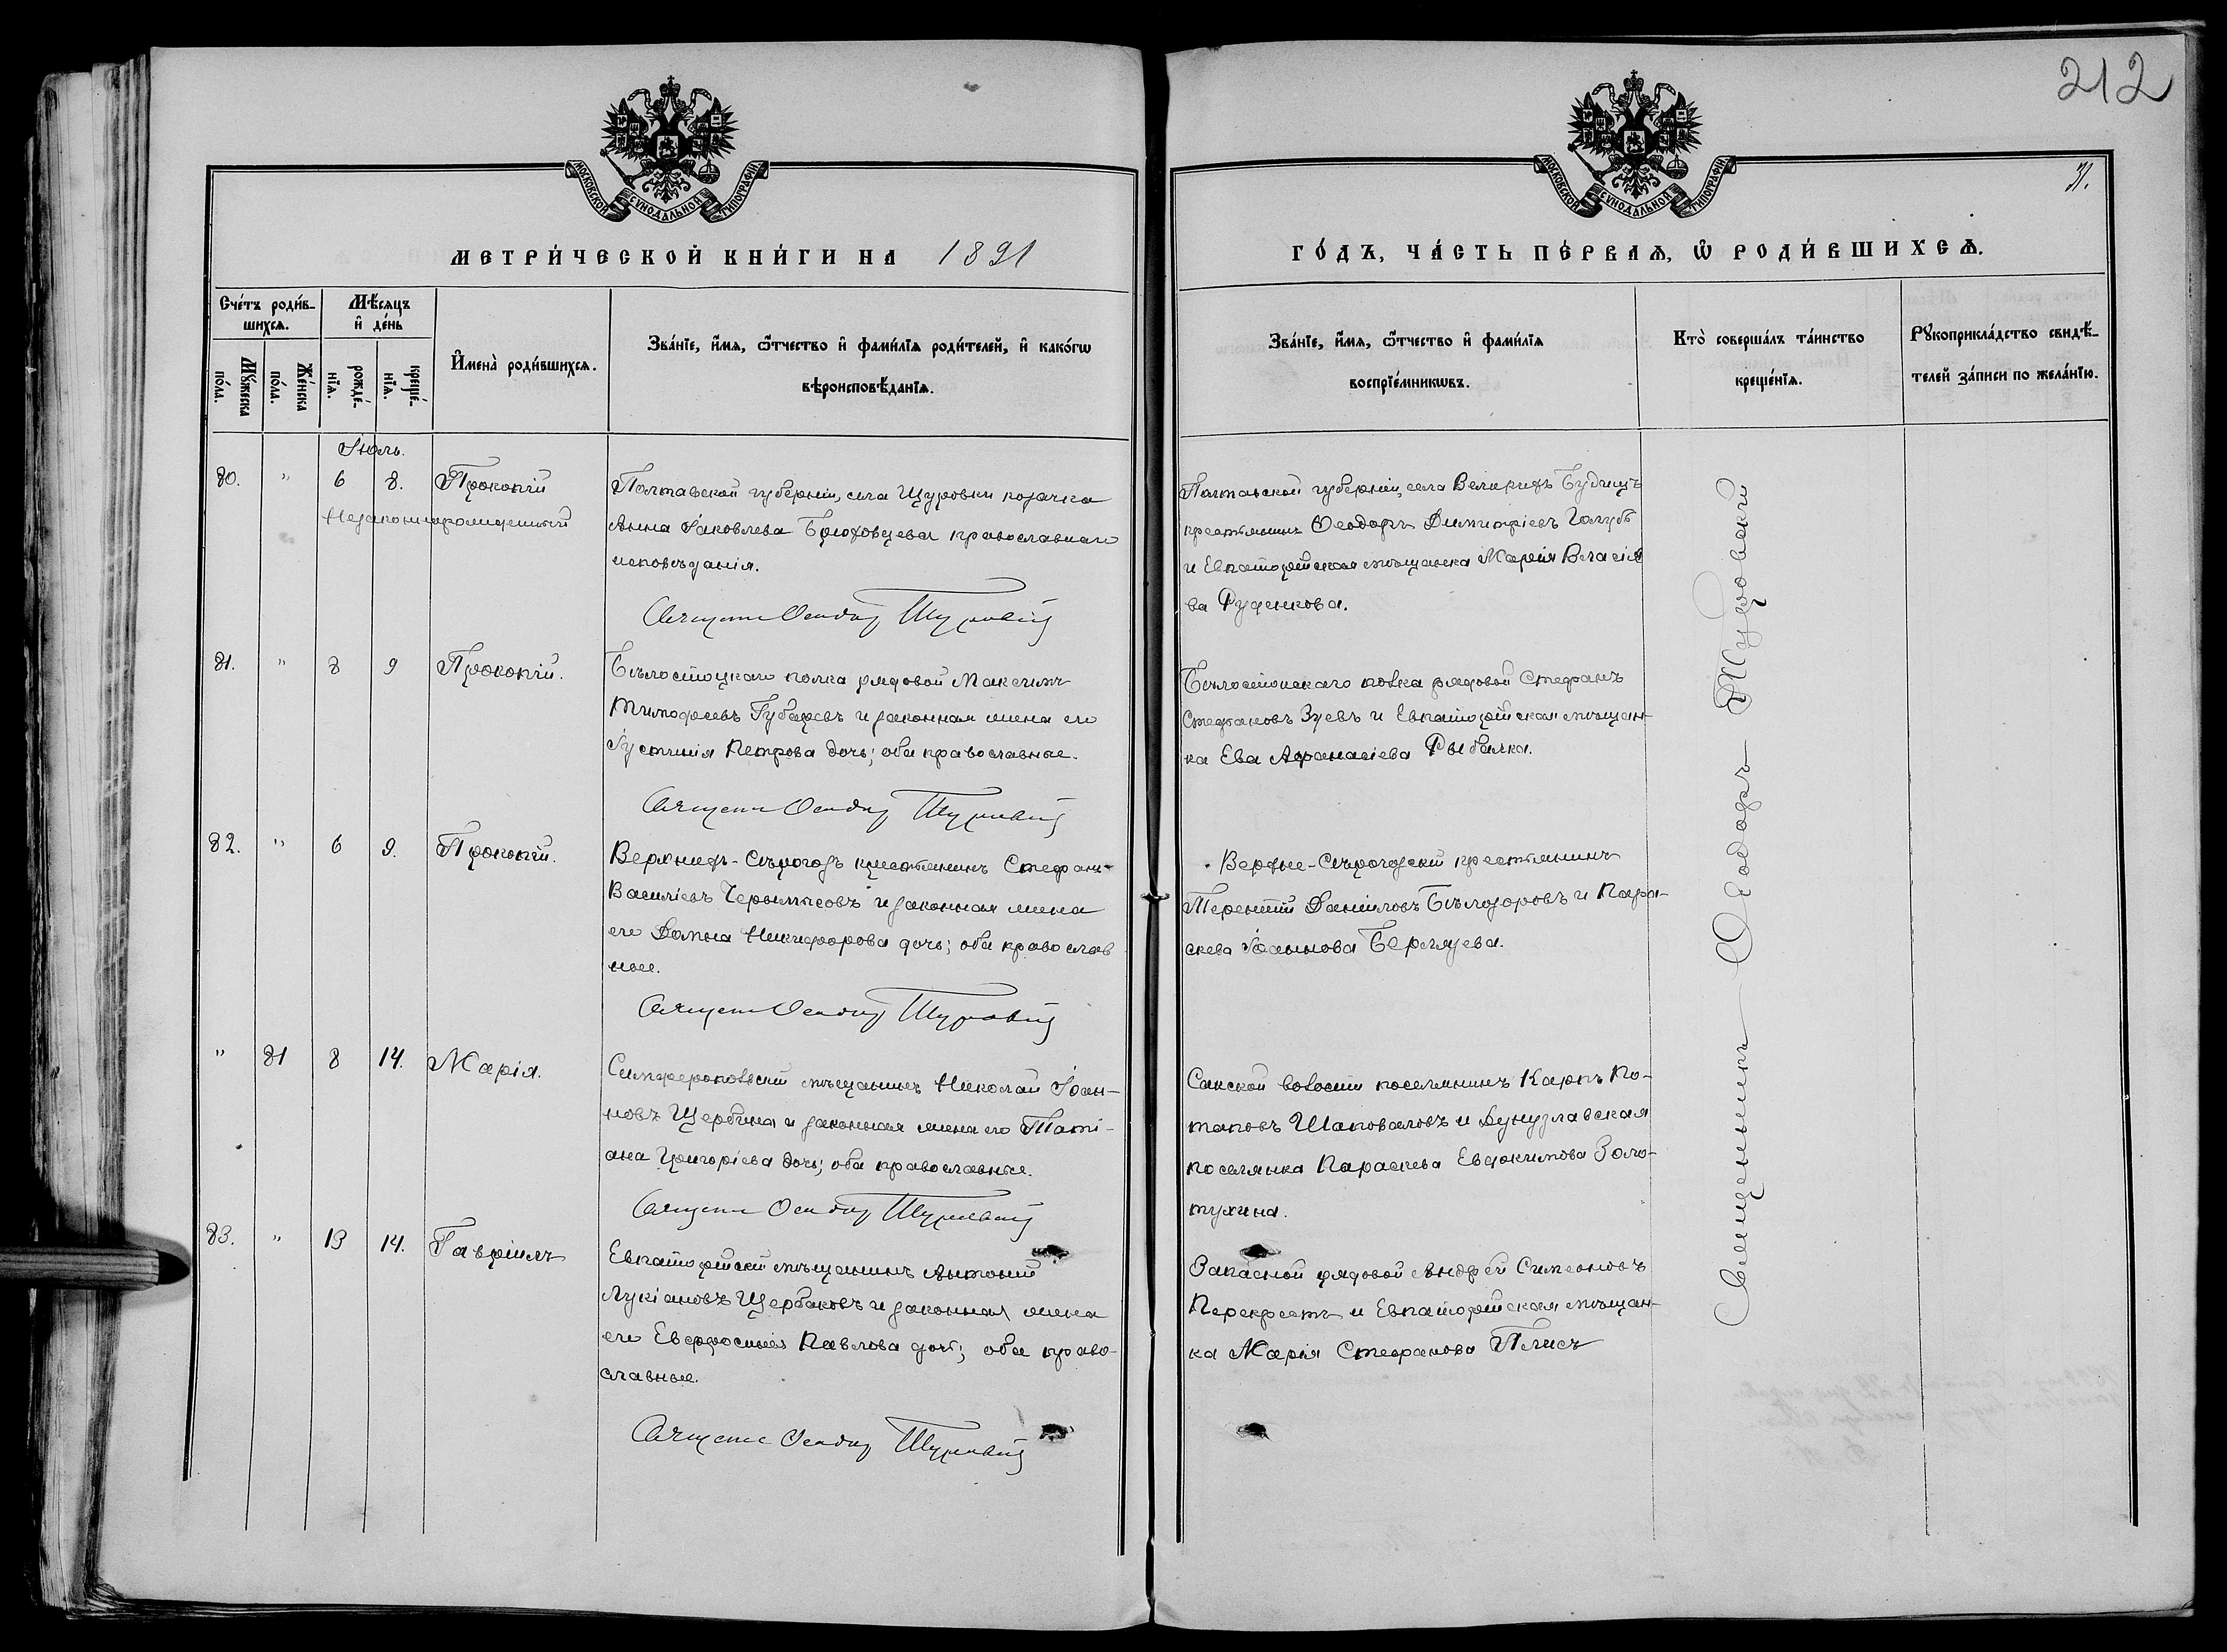 212
31.
МОСКОВСКОЙ СѴНОДАЛЬНОЙ ТИПОГРАФІИ
МОСКОВСКОЙ СѴНОДАЛЬНОЙ ТИПОГРАФІИ
МЕТРИ́ЧЕСКОЙ КНИ́ГИ НА 1891
ГО́ДЪ, ЧА́СТЬ ПЕ́РВАѦ, Ѡ҆ РОДИ́ВШИХСѦ.
Сче́тъ роди́в-
шихсѧ.
Мꙋ́жеска
по́ла.
Же́нска
по́ла.
Мѣ́сѧцъ
и҆ де́нь
рожде́-
нїѧ.
креще́-
нїѧ.
И҆мена̀ роди́вшихсѧ.
Зва́нїе, и҆́мѧ, ѻ҆́тчество и҆ фами́лїѧ роди́телей, и҆ како́гѡ
вѣроисповѣ́данїѧ.
Зва́нїе, и҆́мѧ, ѻ҆́тчество и҆ фами́лїѧ
воспрїе́мникѡвъ.
Кто̀ соверша́лъ та́инство
креще́нїѧ.
Рꙋкоприкла́дство свидѣ́-
телей за́писи по жела́нїю.
Іюль.
80. " 6 8. Прокопій
Незаконнорожденный
Полтавской губерніи, села Щуровки козачка
Анна Іаковлева Брюховцева православнаго
исповѣданія.
Священ Ѳеодор Туровскій
Полтавской губерніи, села Великихъ Будищъ
крестьянинъ Ѳеодоръ Димитріевъ Голубъ
и Евпаторійская мѣщанка Марія Власіе
ва Руденкова.
81. " 8 9 Прокопій.
Бѣлостоцкаго полка рядовой Максимъ
Тимофеевъ Губаревъ и законная жена его
Іустинія Петрова дочь; оба православные.
Священ Ѳеодор Туровскій
Бѣлостокскаго полка рядовой Стефанъ
Стефановъ Зуевъ и Евпаторійская мѣщан-
ка Ева Афанасіева Рыбалка.
82. " 6 9. Прокопій.
Верхнихъ-Сѣрогозъ крестьянинъ Стефанъ
Василіевъ Черемисовъ и законная жена
его Домна Никифорова дочь; оба православ
ные.
Священ Ѳеодор Туровскій
Верхне-Сѣрогозскій крестьянинъ
Терентій Даніиловъ Бѣлозоровъ и Пара-
скева Іоаннова
" 81 8 14. Марія.
Симферопольскій мѣщанинъ Николай Іоан-
новъ Щербина и законная жена его Таті-
ана Григоріева дочь; оба православные.
Священ Ѳеодор Туровскій
Сакской волости поселянинъ Карпъ По-
таповъ Шаповаловъ и Дунузлавская
поселянка Параскева Евдокимова Золо-
тухина.
83. " 13 14. Гавріилъ
Евпаторійскій мѣщанинъ Антоній
Лукіановъ Щербаковъ и законная жена
его Евфросинія Павлова дочь; оба право-
славные.
Священ Ѳеодор Туровскій
Запасной рядовой Андрей Симеоновъ
Перекрестъ и Евпаторійская мѣщан-
ка Марія Стефанова Плисъ
Священникъ Ѳеодоръ Туровскій